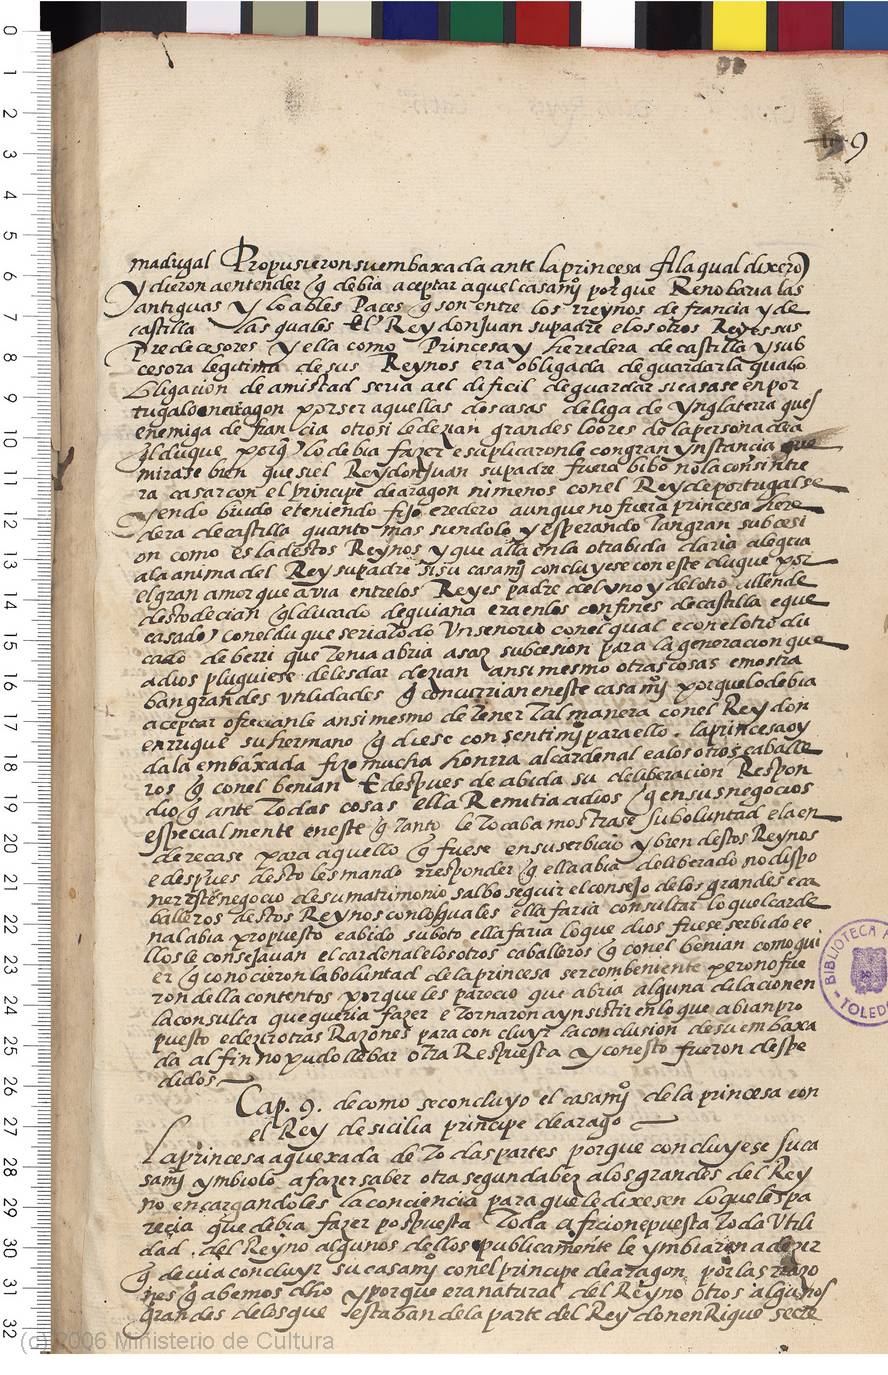 9
madrigal Propusieron su embaxada ante la princesa A la qual dixero
y dieron a entender q̃ debia aceptar aquel casamj̃ por que Renobaria las
antiguas y loables Paces q̃ son entre los rreynos de francia y de
castilla las quales El Rey don Juan su padre e los otros Reyes sus
Predecesores y ella como Princesa y heredera de castilla y sub
cesora legitima de sus Reynos era obligada de guardar la qual
obligacion de amistad seria a el dificil de guardar si casase en por
tugal o en aragon por ser aquellas dos casas de liga de ynglaterra ques
enemiga de francia otrosi le dezian grandes loores de la persona del
q̃l duque porq̃ lo debia fazer e suplicaronle con gran ynstancia que
mirase bien que si el Rey don Juan su padre fuera bibo no la consintie
ra casar con el principe de aragon ni menos con el Rey de portugal se
yendo biudo e teniendo fijo eredero aunque no fuera princesa here
dera de castilla quanto mas siendolo y esperando tan gran subcesi
on como es la destos Reynos y que alla en la otra bida daria alegria
a la anima del Rey su padre si su casamj̃ concluyese con este duque por
el gran amor que avia entre los Reyes padre del vno y del otro allende
desto decian q̃l ducado de guiana era en los confines de castilla e que
casado con el duque seria todo vn senorio con el qual e con el otro du
cado de berri que tenia abria asaz subcesion para la generacion que
a dios pluguiese de les dar dezian ansi mesmo otras cosas e mostra
ban grandes vtilidades q̃ concurrian en este casamj̃ por que lo debia
aceptar ofrecianle ansi mesmo de tener tal manera con el Rey don
enrrique su hermano q̃ diese consentimj̃ para ello. la princesa oy
da la embaxada fizo mucha honrra al cardenal e a los otros caballe
ros q̃ con el benian E despues de abida su deliberacion Respon
dio q̃ ante todas cosas ella Remitia a dios q̃ en sus negocios
especialmente en este q̃ tanto le tocaba mostrase su boluntad e la en
derecase para aquello q̃ fuese en su serbicio y bien destos Reynos
e despues desto les mando rresponder q̃ ella abia deliberado no dispo
ner este negocio de su matrimonio salbo seguir el consejo de los grandes e ca
balleros destos Reynos con los quales ella faria consultar lo quel carde
nal abia propuesto e abido su boto ella faria lo que dios fuese serbido e e
llos le consejavan el cardenal e los otros caballeros q̃ con el benian como qui
er q̃ conocieron la boluntad de la princesa ser combeniente pero no fue
ron della contentos porque les parecio que abria alguna dilacion en
la consulta que queria fazer e tornaron a ynsistir en lo que abian pro
puesto e dezir otras Razones para concluyr la conclusion de su embaxa
da al fin no pudo llebar otra Respuesta y con esto fueron despe
didos
Cap. 9. de como se concluyo el casamj̃ de la princesa con
el Rey de sicilia principe de arago
La princesa aquexada de todas partes porque concluyese su ca
samj̃ ymbiolo a fazer saber otra segunda bez a los grandes del Rey
no encargandoles la conciencia para que le dixesen lo que les pa
recia que debia fazer pospuesta toda aficion e puesta toda vtili
dad del Reyno algunos dellos publicamente le ymbiaron a dezir
q̃ devia concluyr su casamj̃ con el principe de aragon por las razo
nes q̃ abemos dho y porque era natural del Reyno otros algunos
grandes de los que estaban de la parte del Rey don enRique secre
BIBLIOTECA
TOLEDO
0 1 2 3 4 5 6 7 8 9 10 11 12 13 14 15 16 17 18 19 20 21 22 23 24 25 26 27 28 29 30 31 32
(c) 2006 Ministerio de Cultura